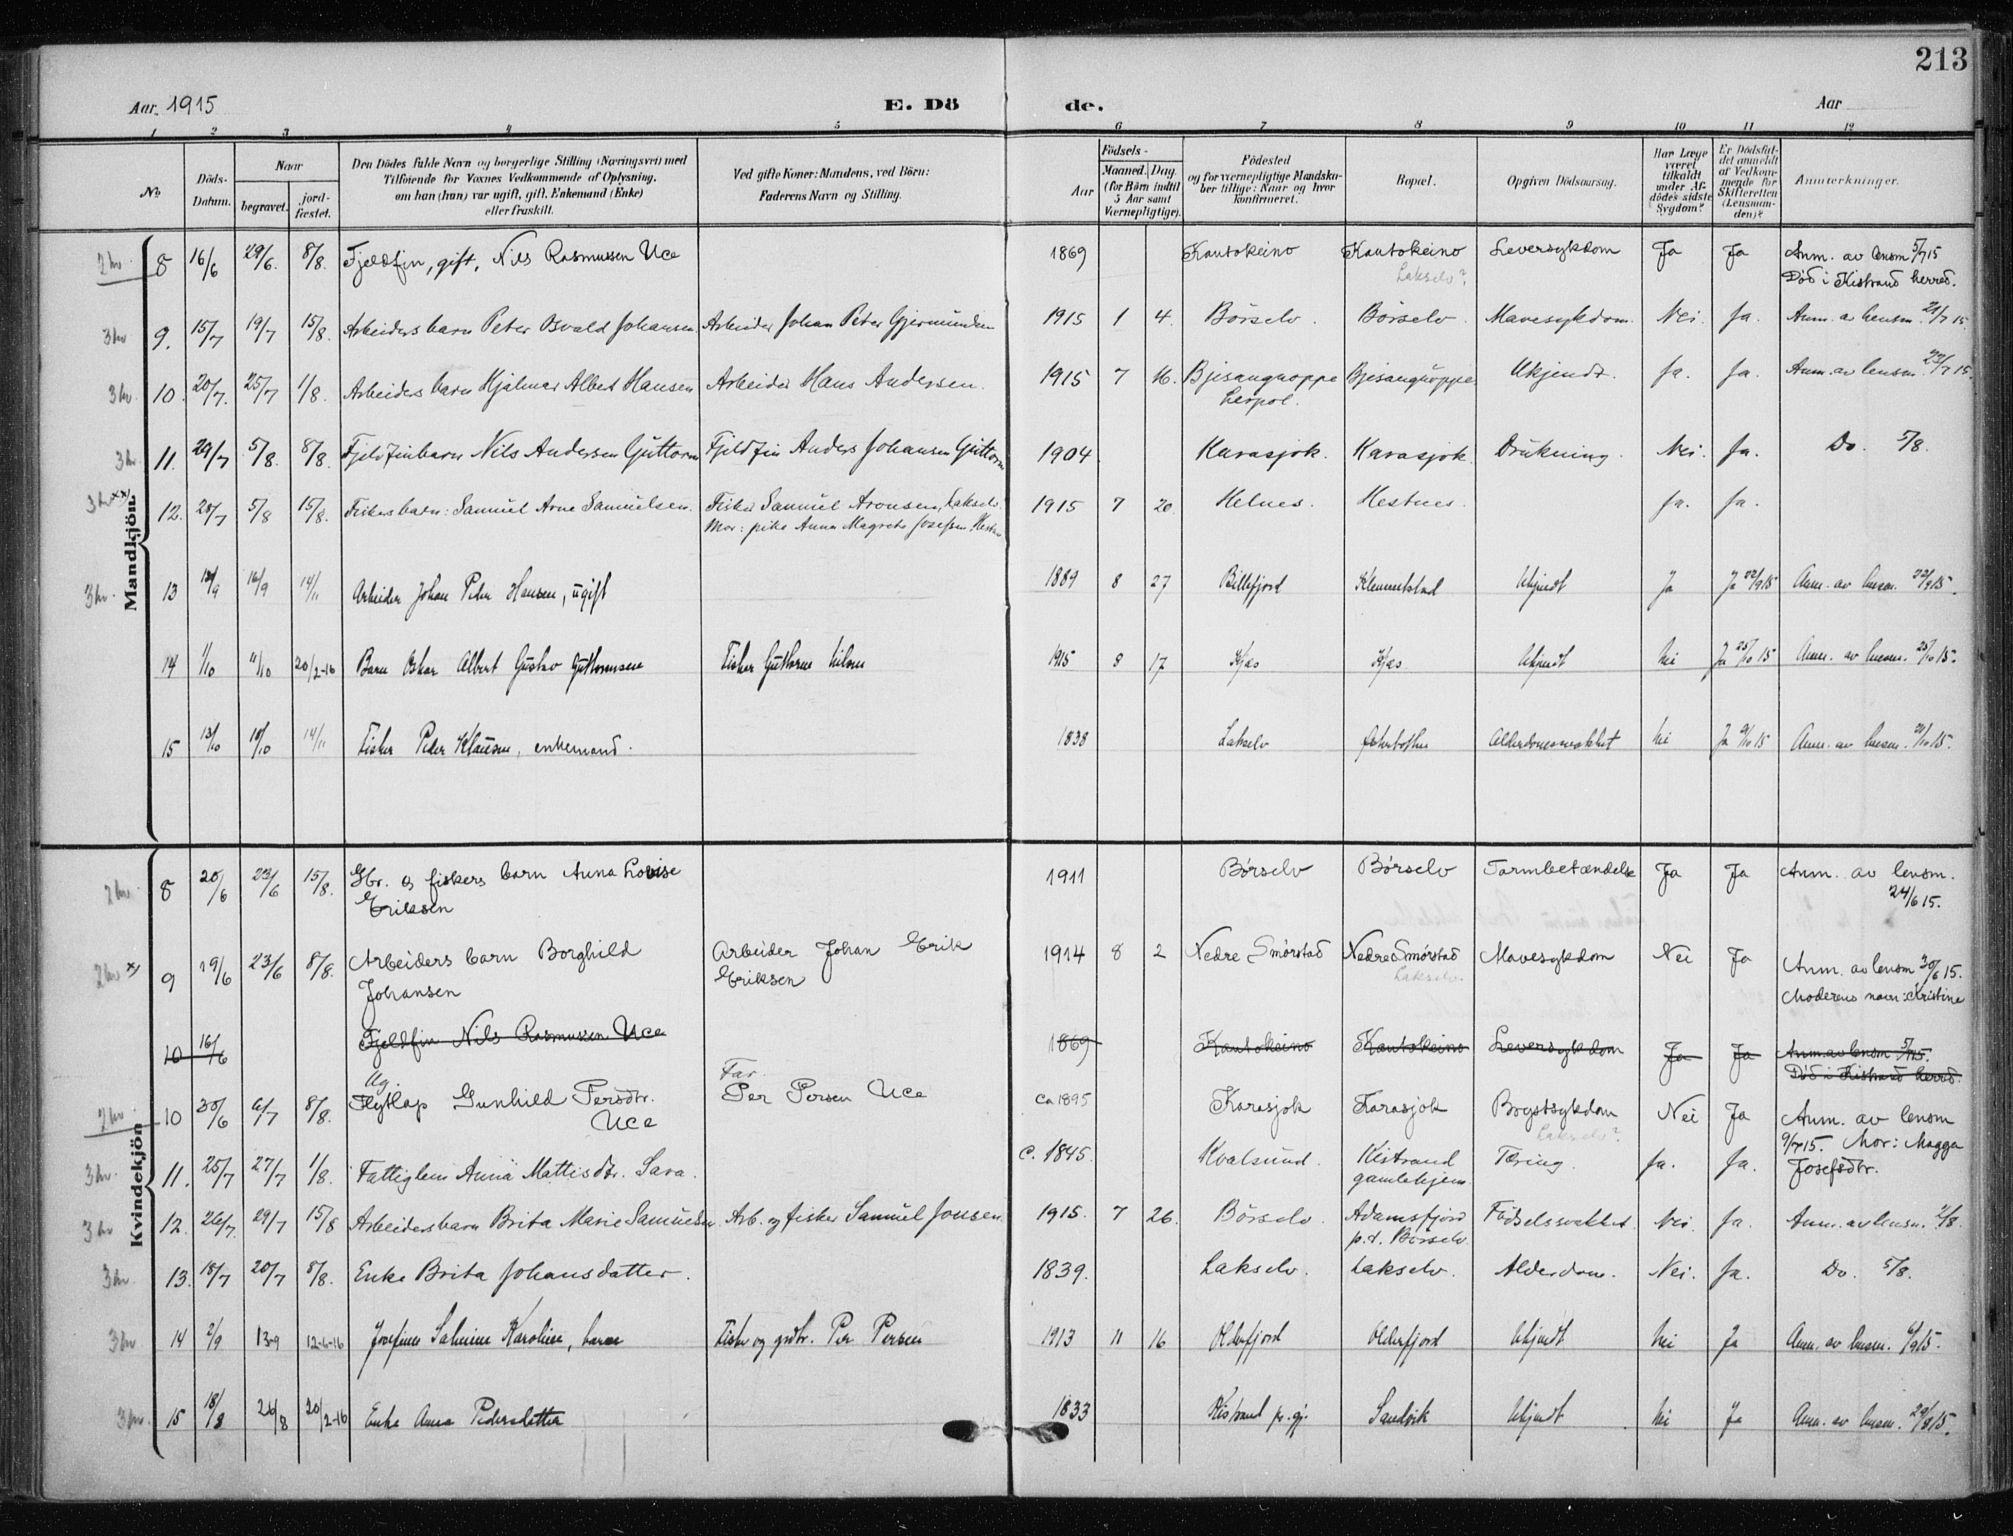 213
Aar. 1915 E. Dö de. Aar
1 2 3 4 5 6 7 8 9 10 11 12
No.
Döds-Datum.
Naar
begravet.
jord-fæstet.
Den Dödes fulde Navn og borgerlige Stilling (Næringsvei) med
Tilföiende for Voxnes Vedkommende af Oplysning,
om han (hun) var ugift, gift, Enkemand (Enke)
eller fraskilt.
Ved gifte Koner: Mandens, ved Börn:
Faderens Navn og Stilling.
Födsels-
Aar
Maaned. Dag.
(for Börn indtil
5 Aar samt
Værnepligtige).
Födested
og for værnepligtige Mandska-
ber tillige: Naar og hvor
konfirmeret.
Bopæl.
Opgiven Dödsaarsag.
Har Læge
været
tilkaldt
under Af-
dödes sidste
Sygdom?
Er Dödsfal-
det anmeldt
af Vedkom-
mende for
Skifteretten
(Lensman-
den)?
Anmerkninger.
Mandkjön
8 16/6 29/6. 8/8. Fjeldfin, gift, Nils Rasmussen Uce 1869 Kautokeino Kautokeino Leversykdom Ja Ja Anm. av lensm 5/7 15
Lakselv? Död i Kistrand herred.
9. 15/7 19/7 15/8. Arbeiders barn Peter Osvald Johansen Arbeider Johan Peter Gjermundsen 1915 1 4. Börselv. Börselv. Mavesykdom. Nei. Ja. Anm. av lensm. 21/7 15
10. 20/7. 25/7 1/8. Arbeiders barn Hjalmar Albert Hansen Arbeider Hans Andersen. 1915 7 16. Bjisaguoppe Bjisaguoppe. Ukjendt. Ja. Ja. Anm. av lensm. 23/7 15.
Leirpol.
11. 29/7 5/8. 8/8. Fjeldfinbarn Nils Andersen Guttorm Fjeldfin Anders Johansen Guttorm 1904 Karasjok. Karasjok. Drukning. Nei. Ja. Do. 5/8.
12. 28/7 5/8 15/8. Fiskers barn: Samuel Arne Samuelsen. Fisker Samuel Aronsen, Lakselv. 1915 7 20. Helnes. Hestnes. Ja. Ja.
Mor: pike Anna Magrete Josefsen
13 16/9 14/11 Arbeider Johan Peder Hansen, ugift 1889 8 27 Billefjord Klemmetstad Ukjendt Ja Ja 22/9 15 Anm. av lensm. 22/9 15.
14 1/10 11/10 20/2-16 Barn Oskar Albert Gustav Guttormsen Fisker Guttorm Nilsen 1915 8 17 Kjæs Kjæs Ukjendt Nei Ja 25/10 15 Anm. av lensm. 25/10 15.
15 13/10 18/10 14/11 Fisker Peder Klausen, enkemand. 1838 Lakselv Alderdomssvakhet Nei Ja Anm. av lensm. 21/10 15.
Kvindekjön
8 20/6 23/6 15/8. Gbr. og fiskers barn Anna Lovise 1911 Börselv Börselv Tarmbetændelse Ja Ja Anm. av lensm.
Eriksen 24/6 15.
9 19/6 23/6 8/8. Arbeiders barn Borghild Arbeider Johan Erik 1914 8 2 Nedre Smörstad Nedre Smörstad Mavesykdom Nei Ja Anm. av lensm 30/6 15.
Johansen Eriksen Lakselv. Moderens navn: Kristine
10 16/6 Fjeldfin Nils Rasmussen Uce 1869 Kautokeino Kautokeino Leversykdom Ja Ja Anm. av lensm 5/7 15.
Död i Kistrand herred.
Ug. Far.
10 30/6 6/7 8/8. Flytlap Gunhild Persdtr. Per Persen Uce ca 1895 Karasjok Karasjok Brystsykdom Nei Ja Anm. av lensm
Uce Lakselv? 9/7 15. Mor: Magga
Josefsdtr.
11. 25/7 27/7 1/8. Fattiglem Anna Mattisdtr. Sara. c. 1845. Kvalsund. Kistrand Tæring. Ja. Ja.
gamlehjem
12. 26/7. 29/7 15/8 Arbeidersbarn Brita Marie Samuelsen Arb. og fisker Samuel Jonsen. 1915. 7 26. Börselv. Adamsfjord Födselssvakhet. Nei. Ja. Anm. av lensm. 2/8.
p.t. Börselv.
13. 18/7 20/7 8/8. Enke Brita Johansdatter. 1839. Lakselv. Lakselv. Alderdom. Nei. Ja. Do. 5/8.
14 2/9 13-9 12-6-16 Josefine Salmine Karoline, barn Fisker og grdbr. Per Persen 1913 11 16 Olderfjord Olderfjord Ukjendt Nei Ja Anm. av lensm. 6/9 15.
15 18/8 26/8 20/2-16 Enke Anna Pedersdatter 1833 Kistrand pr.gj. Sandvik Ukjendt Nei Ja Anm. av lensm. 29/8 15.